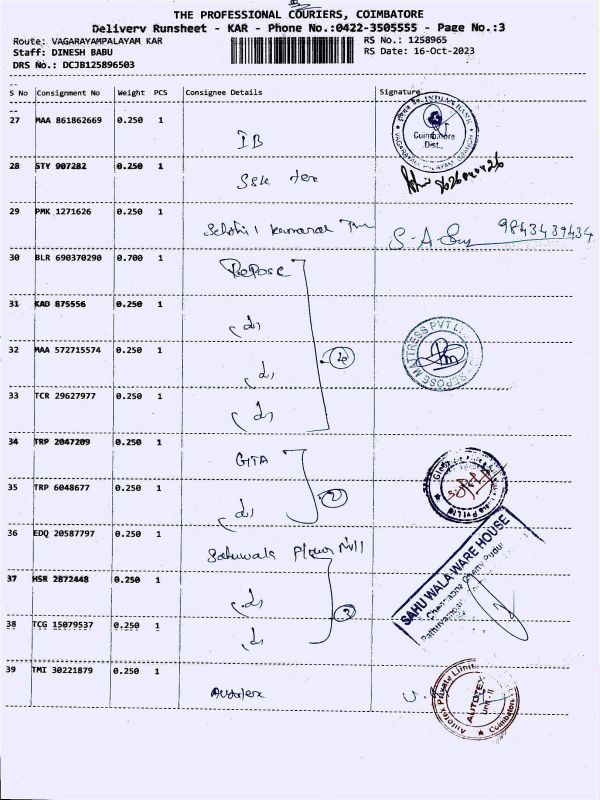 THE PROFESSIONAL COURIERS, COIMBATORE
Delivery Runsheet - KAR - Phone No.:0422-3505555 - Page No.:3
Route: VAGARAYAMPALAYAM KAR
RS No.: 1258965
Staff: DINESH BABU
RS Date: 16-Oct-2023
DRS No.: DCJB125896503
S No Consignment No Weight PCS Consignee Details Signature
27 MAA 861862669 0.250 1 IB
INDIAN BANK
Coimbatore
Dist.,
28 STY 907282 0.250 1
29 PMK 1271626 0.250 1 S-A- 9843439434
30 BLR 690370290 0.700 1 Repose
31 KAD 875556 0.250 1
32 MAA 572715574 0.250 1
REPOSE MATTRESS PVT
33 TCR 29627977 0.250 1
34 TRP 2047209 0.250 1 GTA
35 TRP 6048677 0.250 1 2
36 EDQ 20587797 0.250 1 Sahuwala Flour Mill
SAHU WALA WARE HOUSE
37 HSR 2872448 0.250 1
38 TCG 15079537 0.250 1 3
39 TMI 30221879 0.250 1 Autotex
Autotex Private Limited
AUTOTEX
Unit-II
Coimbatore